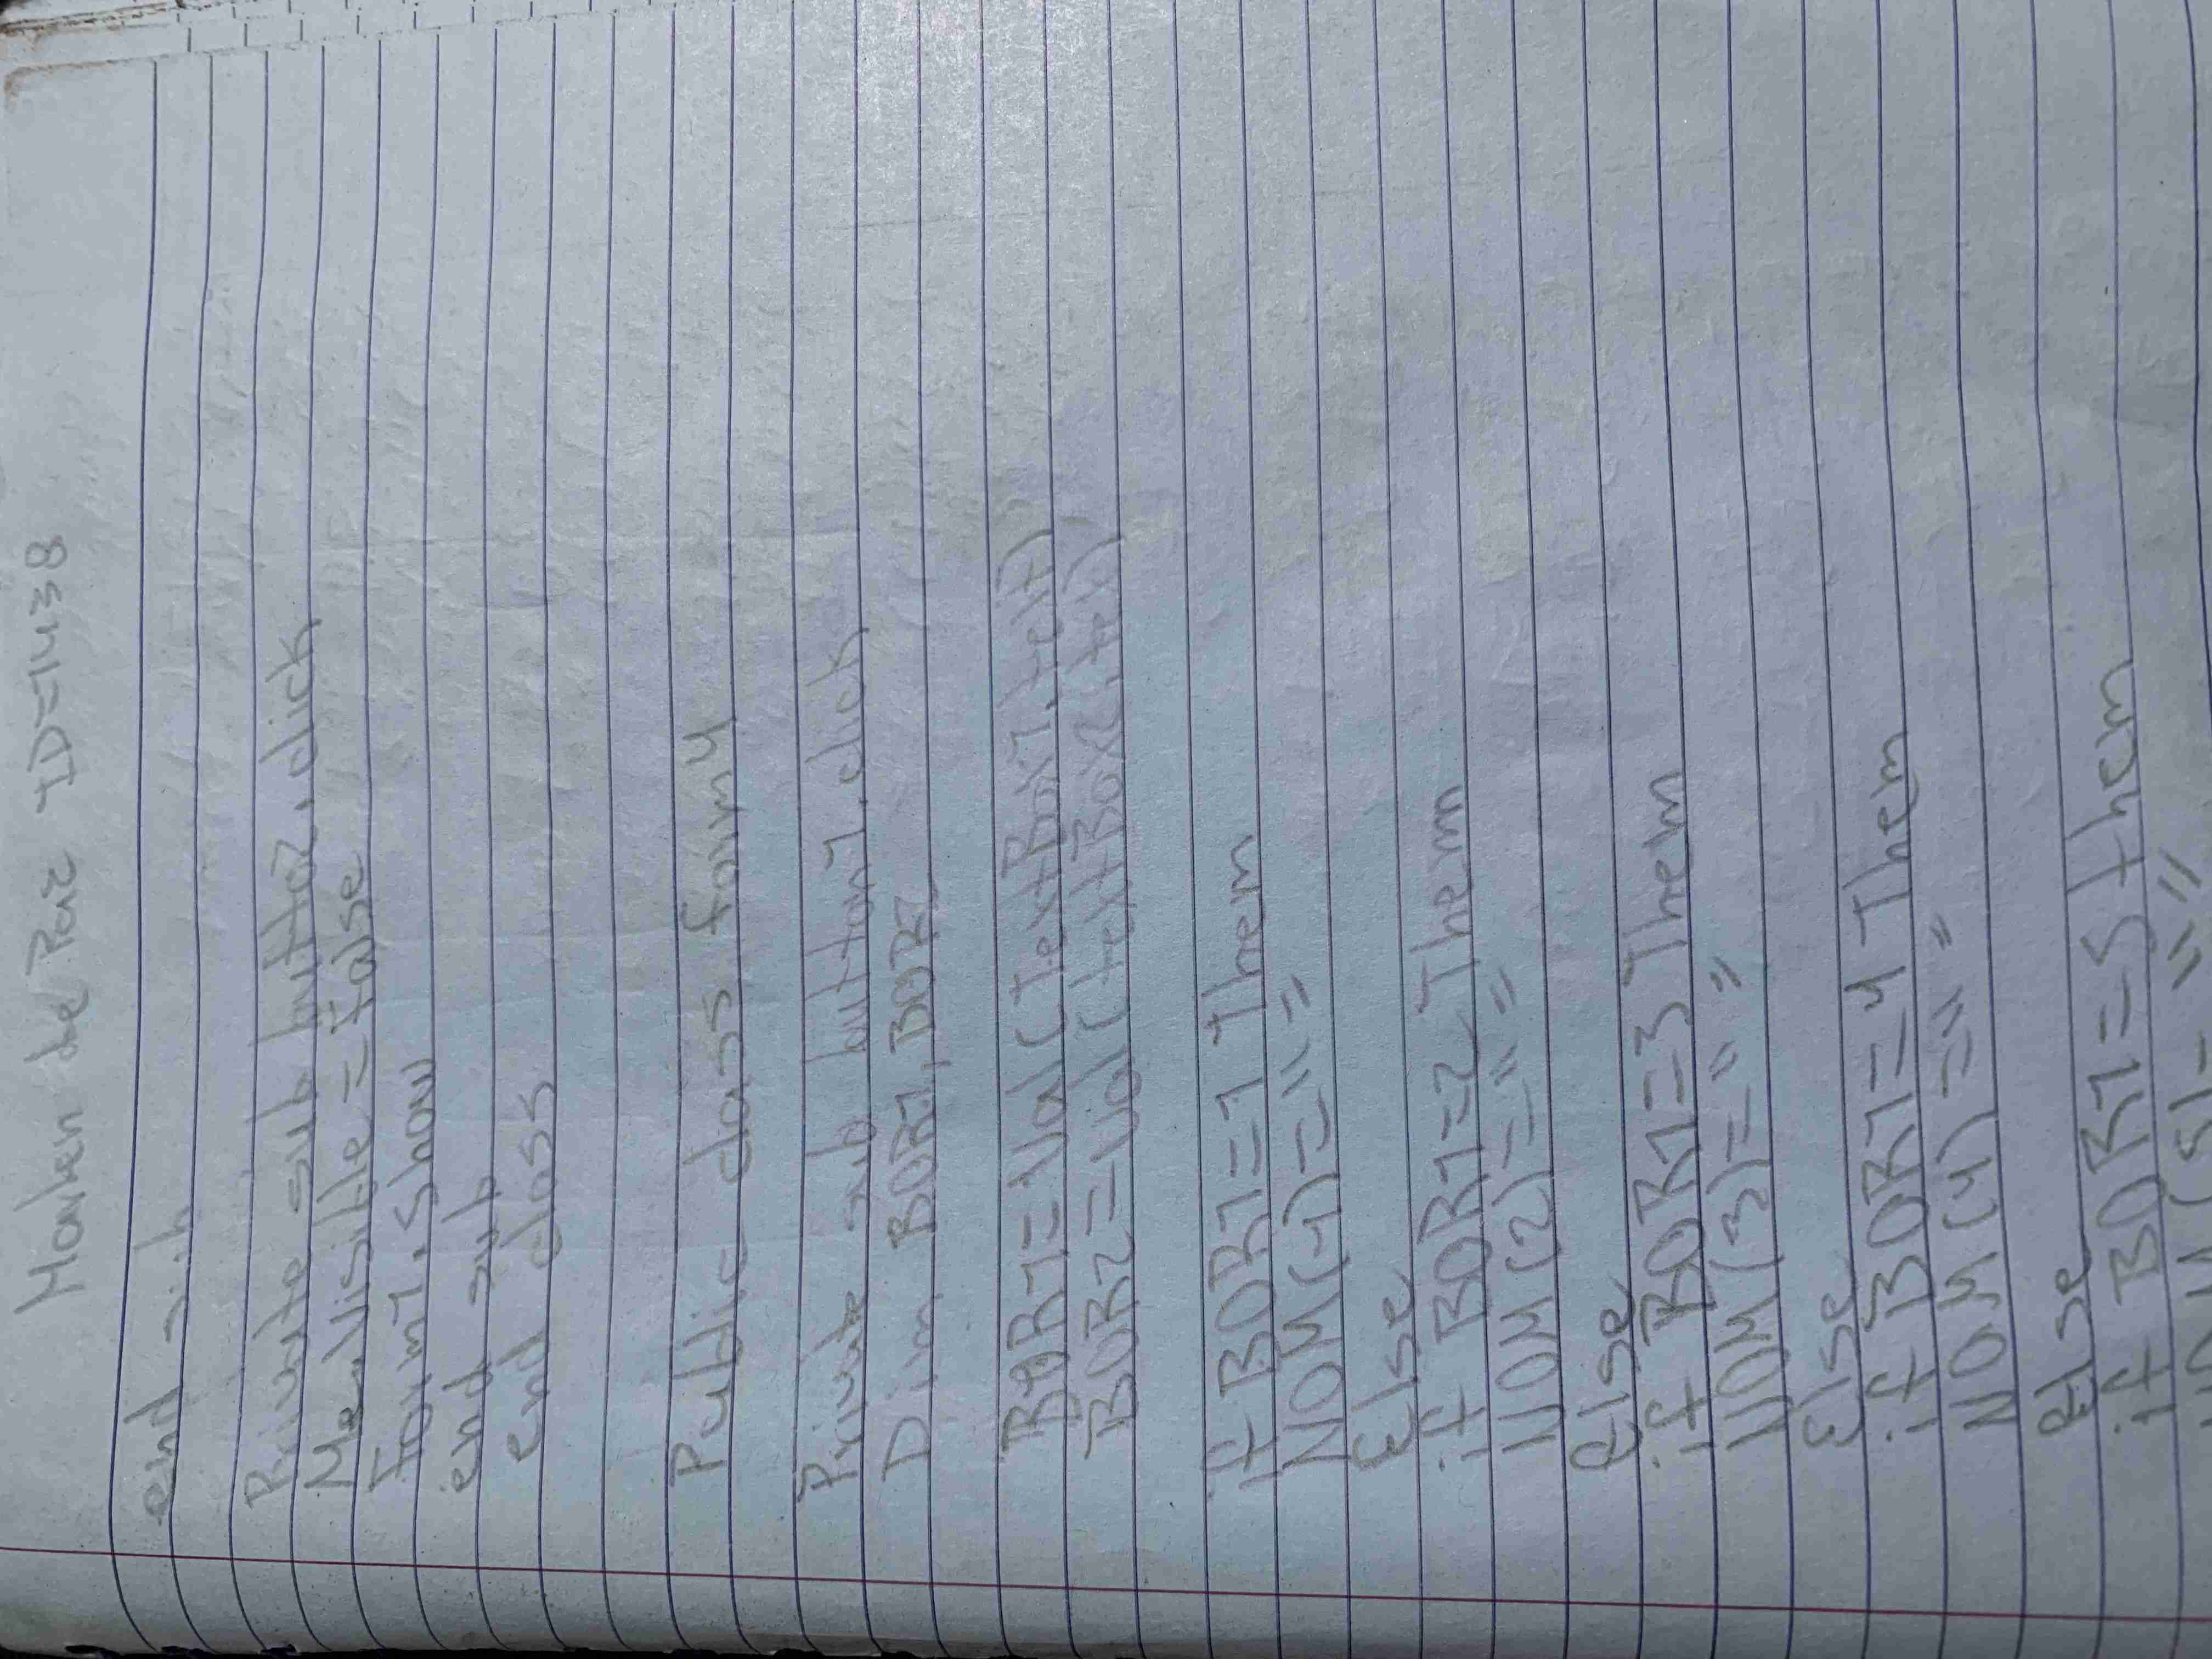 Marlen de Paz ID=1438
end sub
Private sub button2.click
Me.visible = false
Form1.show
end sub
end class
Public class form4
Private sub button1.click
Dim BOR1, BOR2
BOR1=Val(TextBox1.text)
BOR2=Val(textBox2.text)
if BOR1=1 Them
NOM(1)=" "
Else
if BOR1=2 Them
NOM(2)=" "
Else
if BOR1=3 Them
NOM(3)=" "
Else
if BOR1=4 Them
NOM(4)=" "
Else
if BOR1=5 them
NOM(5)=" "